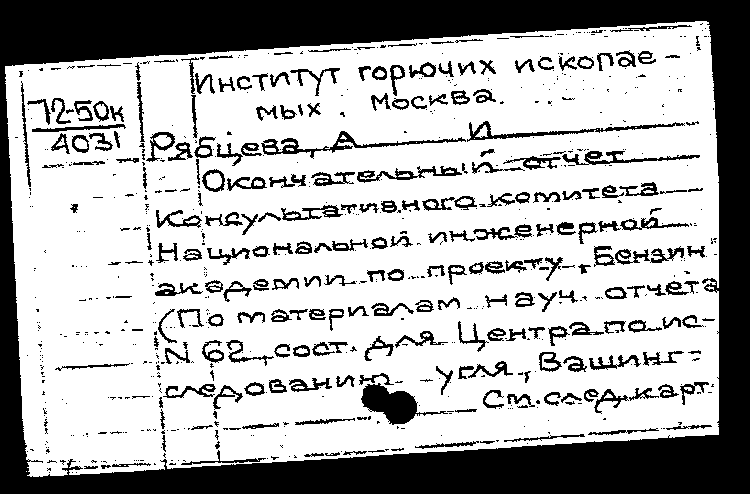 Институт горючих ископае-
мых. Москва.
72-50к
4031
Рябцева, А И
Окончательный отчет
Консультативного комитета
Национальной инженерной
академии по проекту „Бензин"
(По материалам науч. отчета
N 62, сост. для Центра по ис-
следованию угля, Вашинг-
См. след. карт.